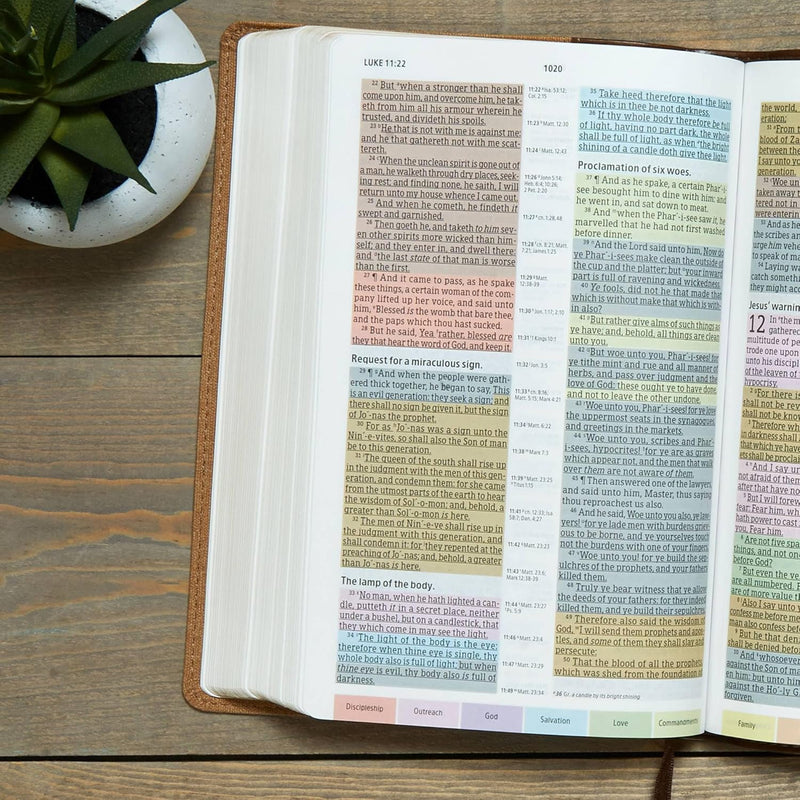 LUKE 11:22
1020
22 But when a stronger than he shall
come upon him, and overcome him, he tak-
eth from him all his armour wherein he
trusted, and divideth his spoils.
23 He that is not with me is against me:
and he that gathereth not with me scat-
tereth.
24 When the unclean spirit is gone out of
a man, he walketh through dry places, seek-
ing rest; and finding none, he saith, I will
return unto my house whence I came out.
25 And when he cometh, he findeth it
swept and garnished.
26 Then goeth he, and taketh to him sev-
en other spirits more wicked than him-
self; and they enter in, and dwell there:
and the last state of that man is worse
than the first.
27 ¶ And it came to pass, as he spake
these things, a certain woman of the com-
pany lifted up her voice, and said unto
him, Blessed is the womb that bare thee,
and the paps which thou hast sucked.
28 But he said, Yea rather, blessed are
they that hear the word of God, and keep it.
Request for a miraculous sign.
29 ¶ And when the people were gath-
ered thick together, he began to say, This
is an evil generation: they seek a sign; and
there shall no sign be given it, but the sign
of Jo´-nas the prophet.
30 For as Jo´-nas was a sign unto the
Nin´-e-vites, so shall also the Son of man
be to this generation.
31 The queen of the south shall rise up
in the judgment with the men of this gen-
eration, and condemn them: for she came
from the utmost parts of the earth to hear
the wisdom of Sol´-o-mon; and, behold, a
greater than Sol´-o-mon is here.
32 The men of Nin´-e-ve shall rise up in
the judgment with this generation, and
shall condemn it: for they repented at the
preaching of Jo´-nas; and, behold, a greater
than Jo´-nas is here.
The lamp of the body.
33 No man, when he hath lighted a can-
dle, putteth it in a secret place, neither
under a bushel, but on a candlestick, that
they which come in may see the light.
34 The light of the body is the eye:
therefore when thine eye is single, thy
whole body also is full of light; but when
thine eye is evil, thy body also is full of
darkness.
11:22 Isa. 53:12;
Col. 2:15
11:23 Matt. 12:30
11:24 Matt. 12:43
11:26 John 5:14;
Heb. 6:4; 10:26;
2 Pet. 2:20
11:27 ch. 1:28, 48
11:28 ch. 8:21; Matt.
7:21; James 1:25
11:29 Matt.
12:38-39
11:30 Jon. 1:17; 2:10
11:31 1 Kings 10:1
11:32 Jon. 3:5
11:33 ch. 8:16;
Matt. 5:15; Mark 4:21
11:34 Matt. 6:22
11:38 Mark 7:3
11:39 Matt. 23:25
Titus 1:15
11:41 ch. 12:33; Isa.
58:7; Dan. 4:27
11:42 Matt. 23:23
11:43 Matt. 23:6;
Mark 12:38-39
11:44 Matt. 23:27
Ps. 5:9
11:46 Matt. 23:4
11:47 Matt. 23:29
11:49 Matt. 23:34
35 Take heed therefore that the light
which is in thee be not darkness.
36 If thy whole body therefore be full
of light, having no part dark, the whole
shall be full of light, as when the bright
shining of a candle doth give thee light.
Proclamation of six woes.
37 ¶ And as he spake, a certain Phar´-i-
see besought him to dine with him: and
he went in, and sat down to meat.
38 And when the Phar´-i-see saw it, he
marvelled that he had not first washed
before dinner.
39 And the Lord said unto him, Now do
ye Phar´-i-sees make clean the outside of
the cup and the platter; but your inward
part is full of ravening and wickedness.
40 Ye fools, did not he that made that
which is without make that which is with-
in also?
41 But rather give alms of such things as
ye have; and, behold, all things are clean
unto you.
42 But woe unto you, Phar´-i-sees! for
ye tithe mint and rue and all manner of
herbs, and pass over judgment and the
love of God: these ought ye to have done,
and not to leave the other undone.
43 Woe unto you, Phar´-i-sees! for ye love
the uppermost seats in the synagogues,
and greetings in the markets.
44 Woe unto you, scribes and Phar´-
i-sees, hypocrites! for ye are as graves
which appear not, and the men that walk
over them are not aware of them.
45 ¶ Then answered one of the lawyers,
and said unto him, Master, thus saying
thou reproachest us also.
46 And he said, Woe unto you also, ye law-
yers! for ye lade men with burdens griev-
ous to be borne, and ye yourselves touch
not the burdens with one of your fingers.
47 Woe unto you! for ye build the sep-
ulchres of the prophets, and your fathers
killed them.
48 Truly ye bear witness that ye allow
the deeds of your fathers: for they indeed
killed them, and ye build their sepulchres.
49 Therefore also said the wisdom of
God, I will send them prophets and apos-
tles, and some of them they shall slay and
persecute:
50 That the blood of all the prophets,
which was shed from the foundation of
*36 Gr. a candle by its bright shining
Discipleship
Outreach
God
Salvation
Love
Commandments
the world,
eration;
51 From t
blood of Za
between the
I say unto yo
generation.
52 Woe un
taken away t
were enterin
53 And as he
the scribes an
urge him vehe
to speak of ma
54 Laying wa
catch somethin
they might accu
Jesus' warnin
12 In the m
gathered
multitude of pe
trode one upon
unto his discip
of the leaven of
hypocrisy.
2 For there is
shall not be rev
shall not be kno
3 Therefore wh
in darkness shall
that which ye have
shall be procla
4 And I say un
not afraid of them
after that have no
5 But I will forew
fear: Fear him, wh
hath power to cast
you, Fear him.
6 Are not five spa
things, and not one
before God?
7 But even the ve
are all numbered. F
are of more value th
8 Also I say unto y
confess me before me
man also confess befor
9 But he that den
shall be denied before
10 And whosoever
against the Son of ma
en him: but unto him
against the Ho´-ly G
forgiven.
Family